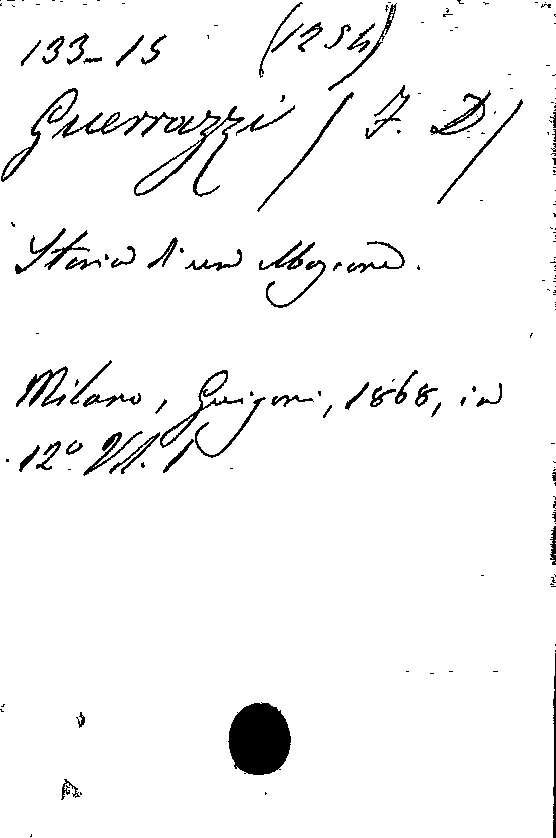 133-15 (1254)
Guerrazzi (F. D)
Storia di un Moscone.
Milano, Guigoni, 1868, in
12° Vol. 1